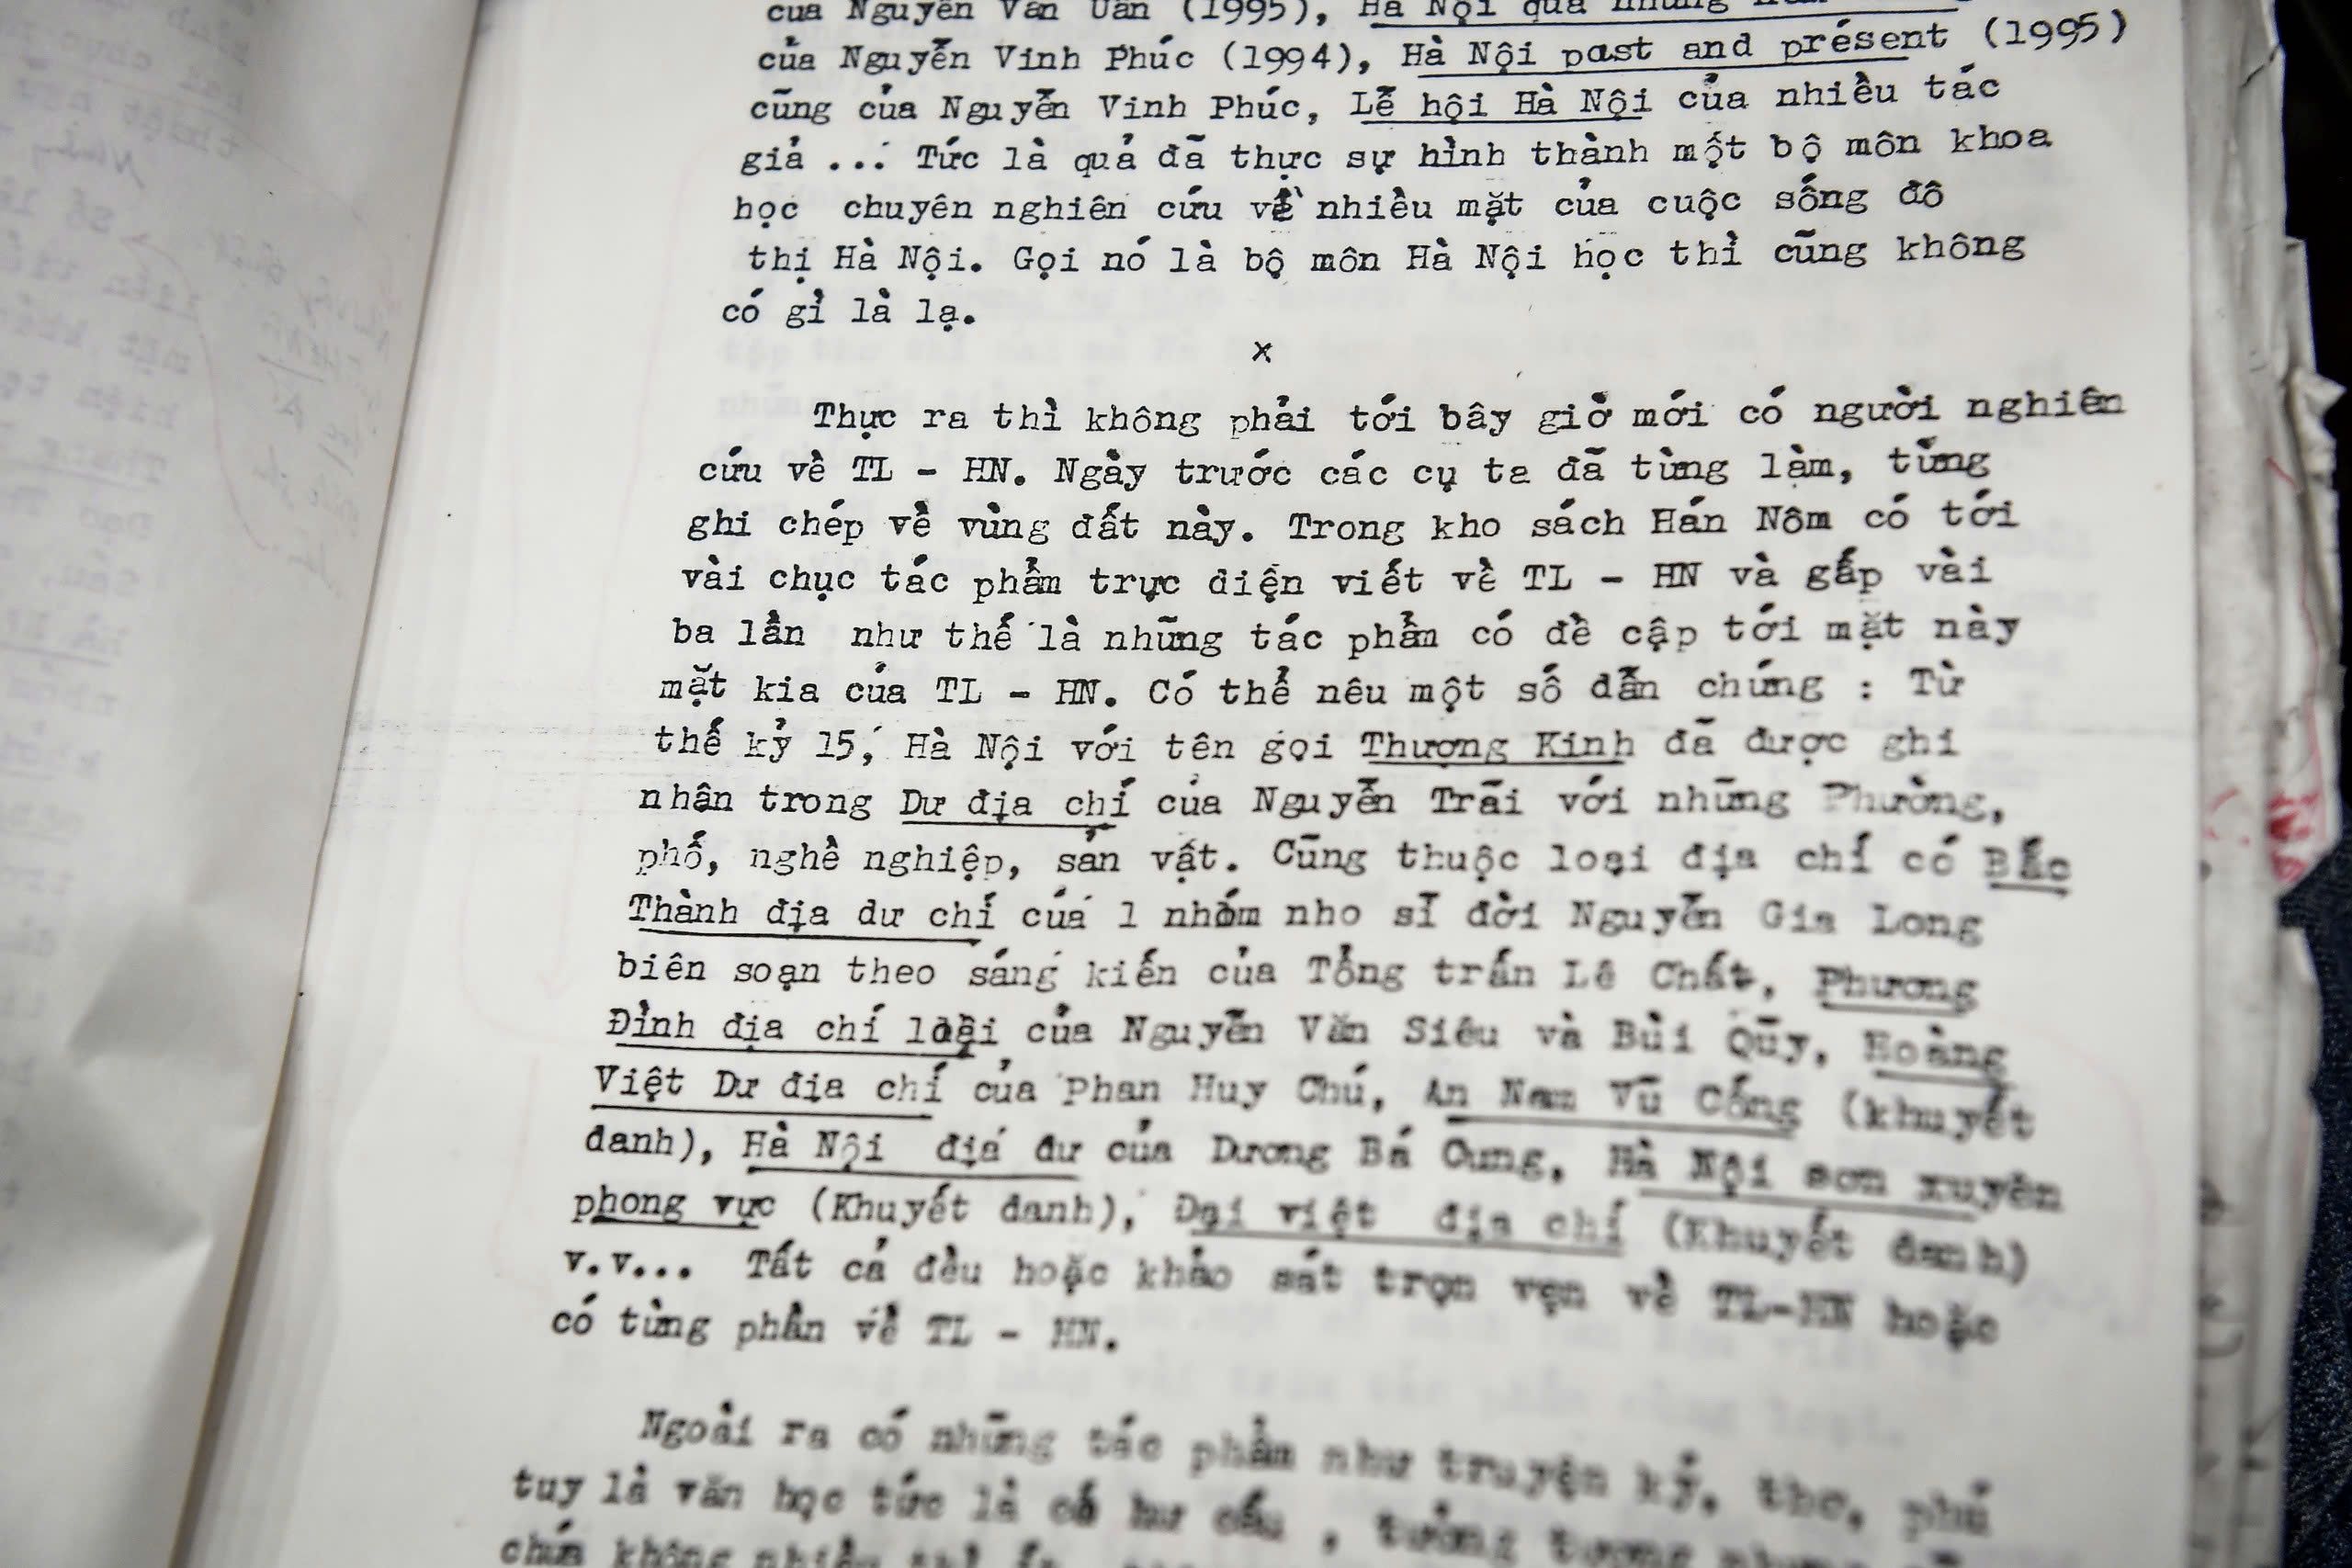 của Nguyễn Văn Uẩn (1995), Hà Nội qua những
của Nguyễn Vinh Phúc (1994), Hà Nội past and présent (1995)
cũng của Nguyễn Vinh Phúc, Lễ hội Hà Nội của nhiều tác
giả ... Tức là quả đã thực sự hình thành một bộ môn khoa
học chuyên nghiên cứu về nhiều mặt của cuộc sống đô
thị Hà Nội. Gọi nó là bộ môn Hà Nội học thì cũng không
có gì là lạ.
x
Thực ra thì không phải tới bây giờ mới có người nghiên
cứu về TL - HN. Ngày trước các cụ ta đã từng làm, từng
ghi chép về vùng đất này. Trong kho sách Hán Nôm có tới
vài chục tác phẩm trực diện viết về TL - HN và gấp vài
ba lần như thế là những tác phẩm có đề cập tới mặt này
mặt kia của TL - HN. Có thể nêu một số dẫn chứng : Từ
thế kỷ 15, Hà Nội với tên gọi Thượng Kinh đã được ghi
nhận trong Dư địa chí của Nguyễn Trãi với những Phường,
phố, nghề nghiệp, sản vật. Cũng thuộc loại địa chí có Bắc
Thành địa dư chí của 1 nhóm nho sĩ đời Nguyễn Gia Long
biên soạn theo sáng kiến của Tổng trấn Lê Chất, Phương
Đình địa chí loại của Nguyễn Văn Siêu và Bùi Qũy, Hoàng
Việt Dư địa chí của Phan Huy Chú, An Nam Vũ Cống (khuyết
danh), Hà Nội địa dư của Dương Bá Cung, Hà Nội sơn xuyên
phong vực (Khuyết danh), Đại việt địa chí (Khuyết danh)
v.v... Tất cả đều hoặc khảo sát trọn vẹn về TL-HN hoặc
có từng phần về TL - HN.
Ngoài ra có những tác phẩm như truyện ký, thơ, phú
tuy là văn học tức là có hư cấu , tưởng tượng
chứa không nhiều